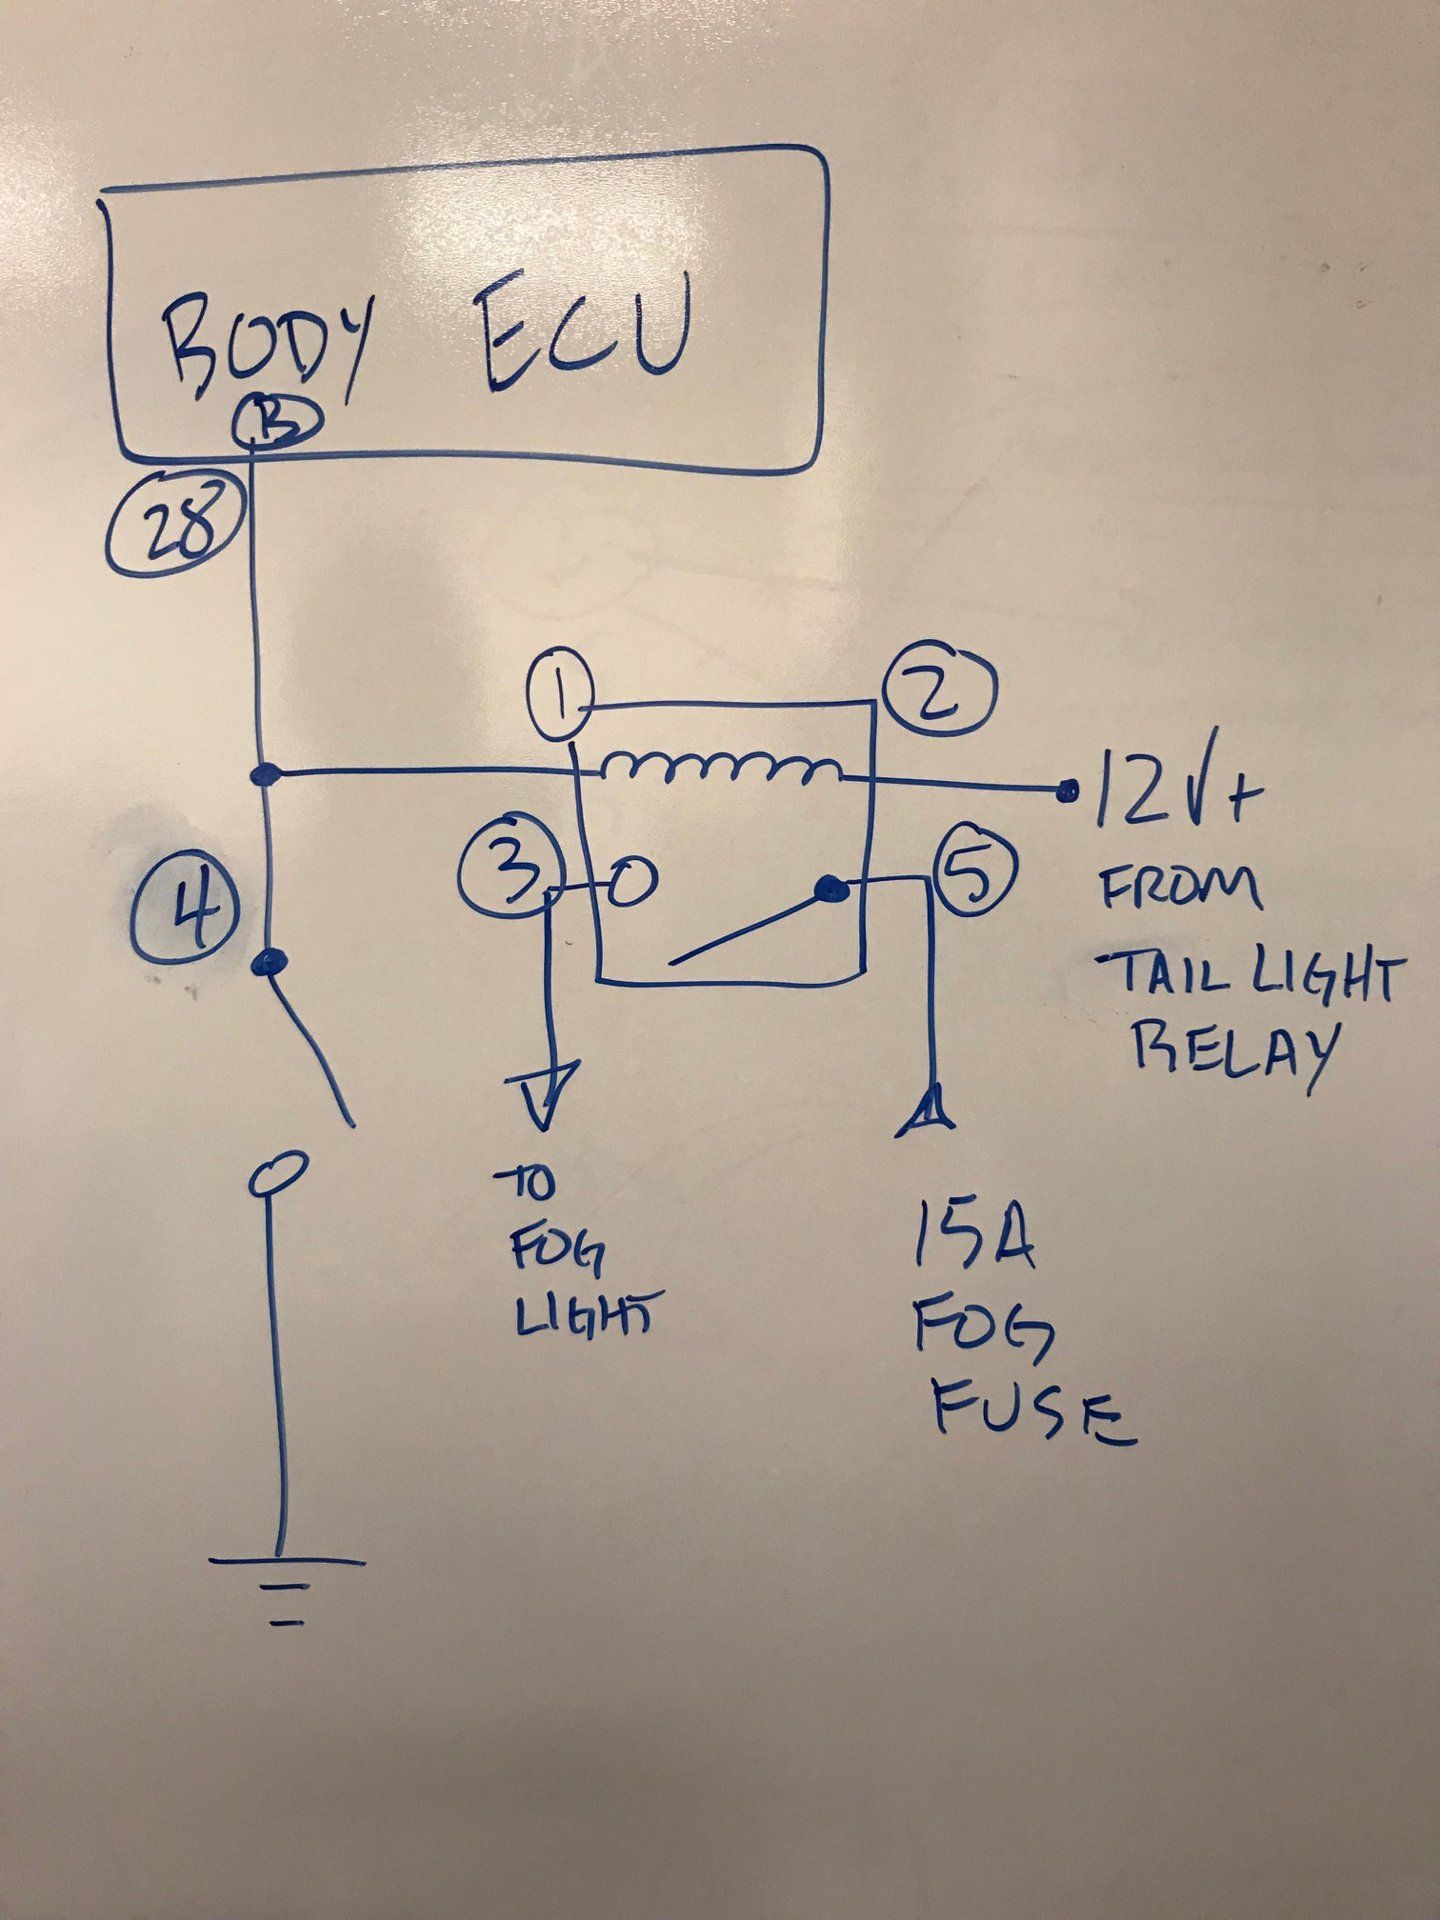 BODY ECU
B
28
1
2
12V+
3
5
4
FROM
TAIL LIGHT
RELAY
TO
FOG
LIGHT
15A
FOG
FUSE